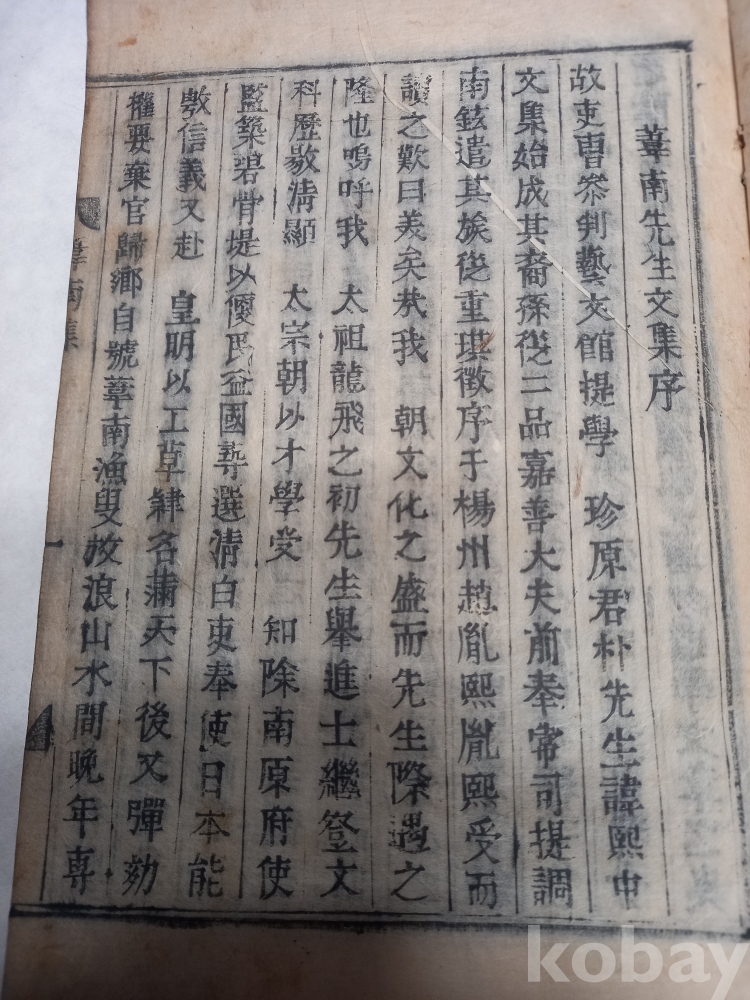 葦南先生文集序
故吏曹叅判藝文館提學 珍原君朴先生諱熙中
文集始成其裔孫從二品嘉善大夫前奉常司提調
南鉉遣其族從重琪徵序于楊州趙胤熙胤熙受而
讀之歎曰美矣㢤我 朝文化之盛而先生際遇之
隆也嗚呼我 太祖龍飛之初先生舉進士繼登文
科歷敭淸顯 太宗朝以才學受 知除南原府使
監築碧骨堤以便民益國尋選淸白吏奉使日本能
敷信義又赴 皇明以工草隷名滿天下後又彈劾
權要棄官歸鄕自號葦南漁叟放浪山水間晩年專
葦南集
一
kobay